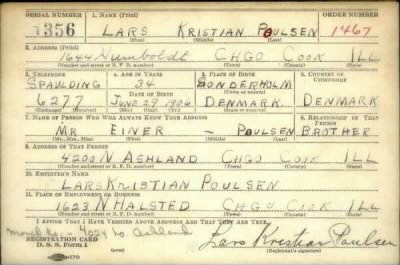 SERIAL NUMBER 1. NAME (Print) ORDER NUMBER
1356 LARS KRISTIAN POULSEN 1467
(First) (Middle) (Last)
2. ADDRESS (Print)
1644 Humboldt CHGO COOK ILL
(Number and street or R. F. D. number) (Town) (County) (State)
3. TELEPHONE 4. AGE IN YEARS 5. PLACE OF BIRTH 6. COUNTRY OF CITIZENSHIP
SPAULDING 34 SONDERHOLM
DATE OF BIRTH (Town or county)
6277 JUNE 29 1906 DENMARK DENMARK
(Exchange) (Number) (Mo.) (Day) (Yr.) (State or country)
7. NAME OF PERSON WHO WILL ALWAYS KNOW YOUR ADDRESS 8. RELATIONSHIP OF THAT PERSON
MR EINER - POULSEN BROTHER
(Mr., Mrs., Miss) (First) (Middle) (Last)
9. ADDRESS OF THAT PERSON
4200 N ASHLAND CHGO COOK ILL
(Number and street or R. F. D. number) (Town) (County) (State)
10. EMPLOYER'S NAME
LARS KRISTIAN POULSEN
11. PLACE OF EMPLOYMENT OR BUSINESS
1623 N HALSTED CHGO COOK ILL
(Number and street or R. F. D. number) (Town) (County) (State)
I AFFIRM THAT I HAVE VERIFIED ABOVE ANSWERS AND THAT THEY ARE TRUE.
moved to - 4024 No. Ashland
REGISTRATION CARD Lars Kristian Poulsen
D. S. S. Form 1 (Registrant's signature)